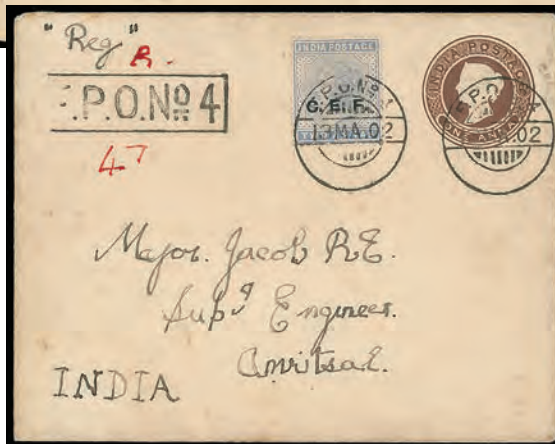 "Reg"
R.
F.P.O. No 4
47
INDIA POSTAGE
C.E.F.
F.P.O. No 4
13 MA.02
INDIA POSTAGE
ONE ANNA
F.P.O. 4
.02
Major. Jacob R.E.
Supg Engineer.
Amritsar.
INDIA